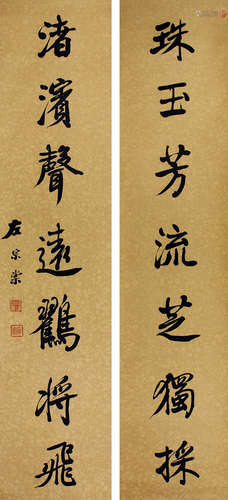 珠玉芳流芝獨採
渚濱聲遠鸛將飛
左宗棠